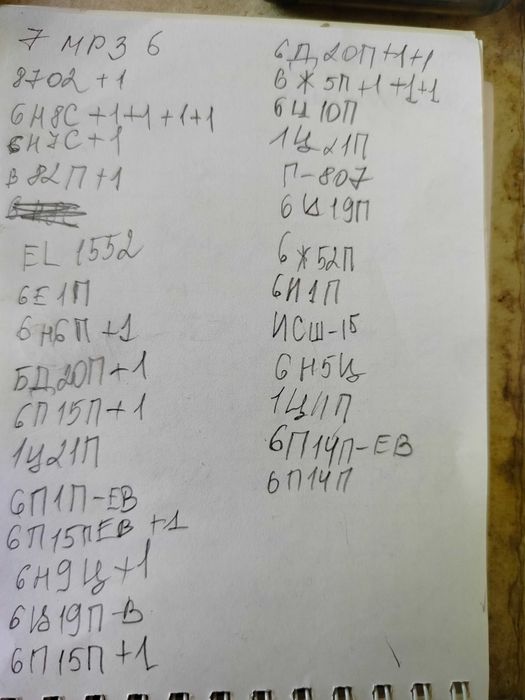 7 МР3 6
8702 +1
6Н8С +1+1+1+1
6Н7С+1
в 82П+1
EL 1552
6Е1П
6Н6П +1
6Д20П+1
6П15П+1
1Ц21П
6П1П-ЕВ
6П15ПЕВ +1
6Н9Ц+1
6Ц19П-В
6П15П+1
6Д20П+1+1
6Ж5П+1+1+1
6Ц10П
1Ц21П
П-807
6Ц19П
6Ж52П
6И1П
ИСШ-15
6Н5Ц
1Ц11П
6П14П-ЕВ
6П14П